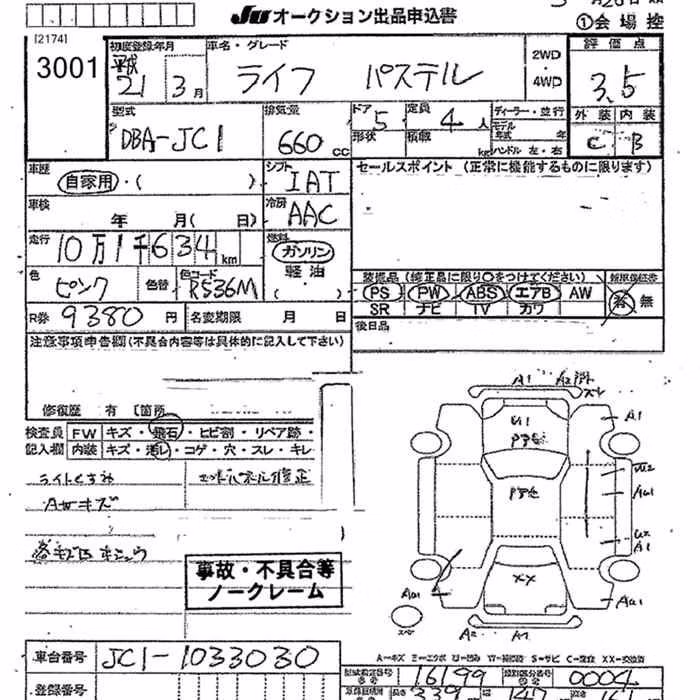 JU オークション出品申込書
①会場控
[2174]
3001
初度登録年月
平成
21 3月
車名・グレード
ライフ パステル
2WD
4WD
評価点
3.5
外装 内装
C B
型式
DBA-JC1
排気量
660 cc
ドア 5
形状
定員 4 人
積載 kg
ディーラー・並行
モデル年式 年
ハンドル 左・右
車歴
自家用・( )
シフト
IAT
セールスポイント (正常に機能するものに限ります)
車検
年 月( 日)
冷房
AAC
走行
10万1千634km
燃料
ガソリン
軽油
( )
色
ピンク
色替
色コード
R536M
装備品 (純正品に限り○をつけてください)
PS PW ABS エアB AW
SR ナビ TV カワ
有 無
R券 9380 円
名変期限 月 日
後日品
注意事項申告欄(不具合内容等は具体的に記入して下さい)
修復歴 有 [箇所
検査員
記入欄
FW キズ・飛石・ヒビ割・リペア跡・
内装 キズ・汚レ・コゲ・穴・スレ・キレ
ライトくすみ
AWキズ
事故・不具合等
ノークレーム
A1 A2
A1
U1
XX
A1
A2 A1
スペア
A-キズ
S-サビ
XX-交換済
車台番号 JC1-1033030
型式指定番号 16199
類別区分番号 0004
登録番号
長さ 339